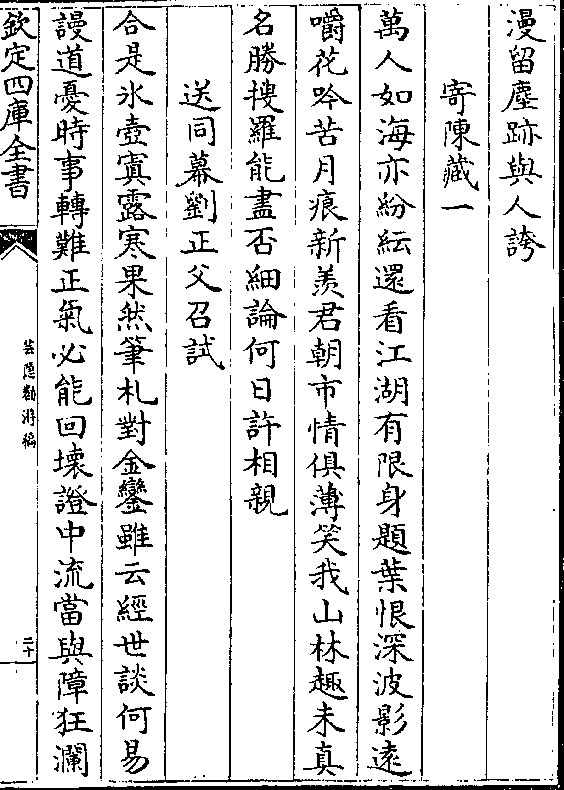 漫留塵跡與人誇
寄陳藏一
萬人如海亦紛紜還看江湖有限身題葉恨深波影遠
嚼花吟苦月痕新羨君朝市情俱薄笑我山林趣未真
名勝搜羅能盡否細論何日許相親
送同幕劉正父召試
合是氷壺寘露寒果然筆札對金鑾雖云經世談何易
謾道憂時事轉難正氣必能回壞證中流當與障狂瀾
欽定四庫全書
芸隱勸游稿
二十